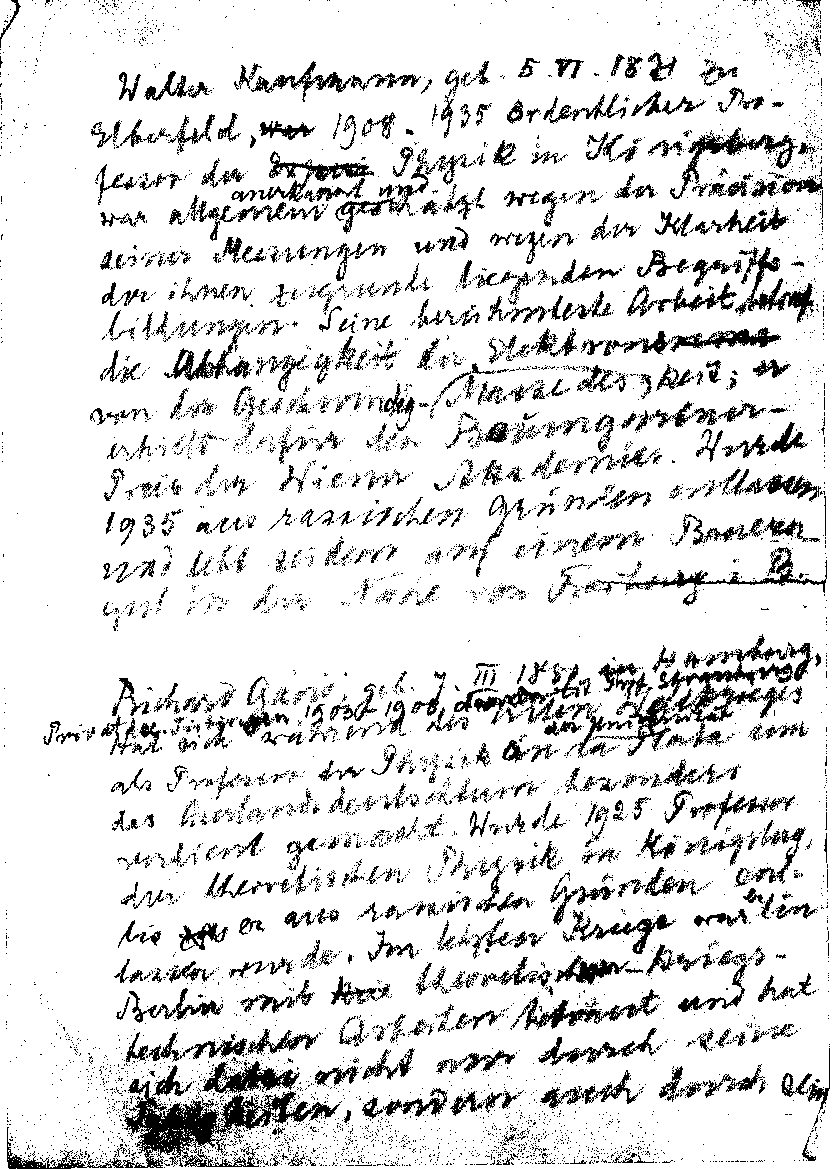 Walter Kaufmann, geb. 5. VI. 1871 zu
Elberfeld, war 1908 - 1935 ordentlicher Pro-
fessor der Physik in Königsberg,
anerkannt und
war allgemein geschätzt wegen der Präcision
seiner Messungen und wegen der Klarheit
der ihnen zugrunde liegenden Begriffs-
bildungen. Seine berühmteste Arbeit betraf
die Abhängigkeit der Elektronen
von der Geschwindig- Masse des keit; er
erhielt dafür den Baumgartner-
Preis der Wiener Akademie. Wurde
1935 aus rassischen Gründen entlassen
und lebt seidem auf einem Bauern-
gut in der Nähe von Freiburg i. B.
Richard Gans, geb. 7. III 188 in Hamburg,
Privatdoz. Tübingen 1903 - 1908, Straßburg
hat sich während des
der Universität
als Professor der Physik in La Plata um
das Auslandsdeutschtum besonders
verdient gemacht. Wurde 1925 Professor
der theoretischen Physik in Königsberg,
bis er aus rassischen Gründen ent-
lassen wurde. Im letzten Kriege war er in
Berlin mit theoretischen kriegs-
technischen Arbeiten betraut und hat
sich dabei nicht nur durch seine
sondern auch durch sein